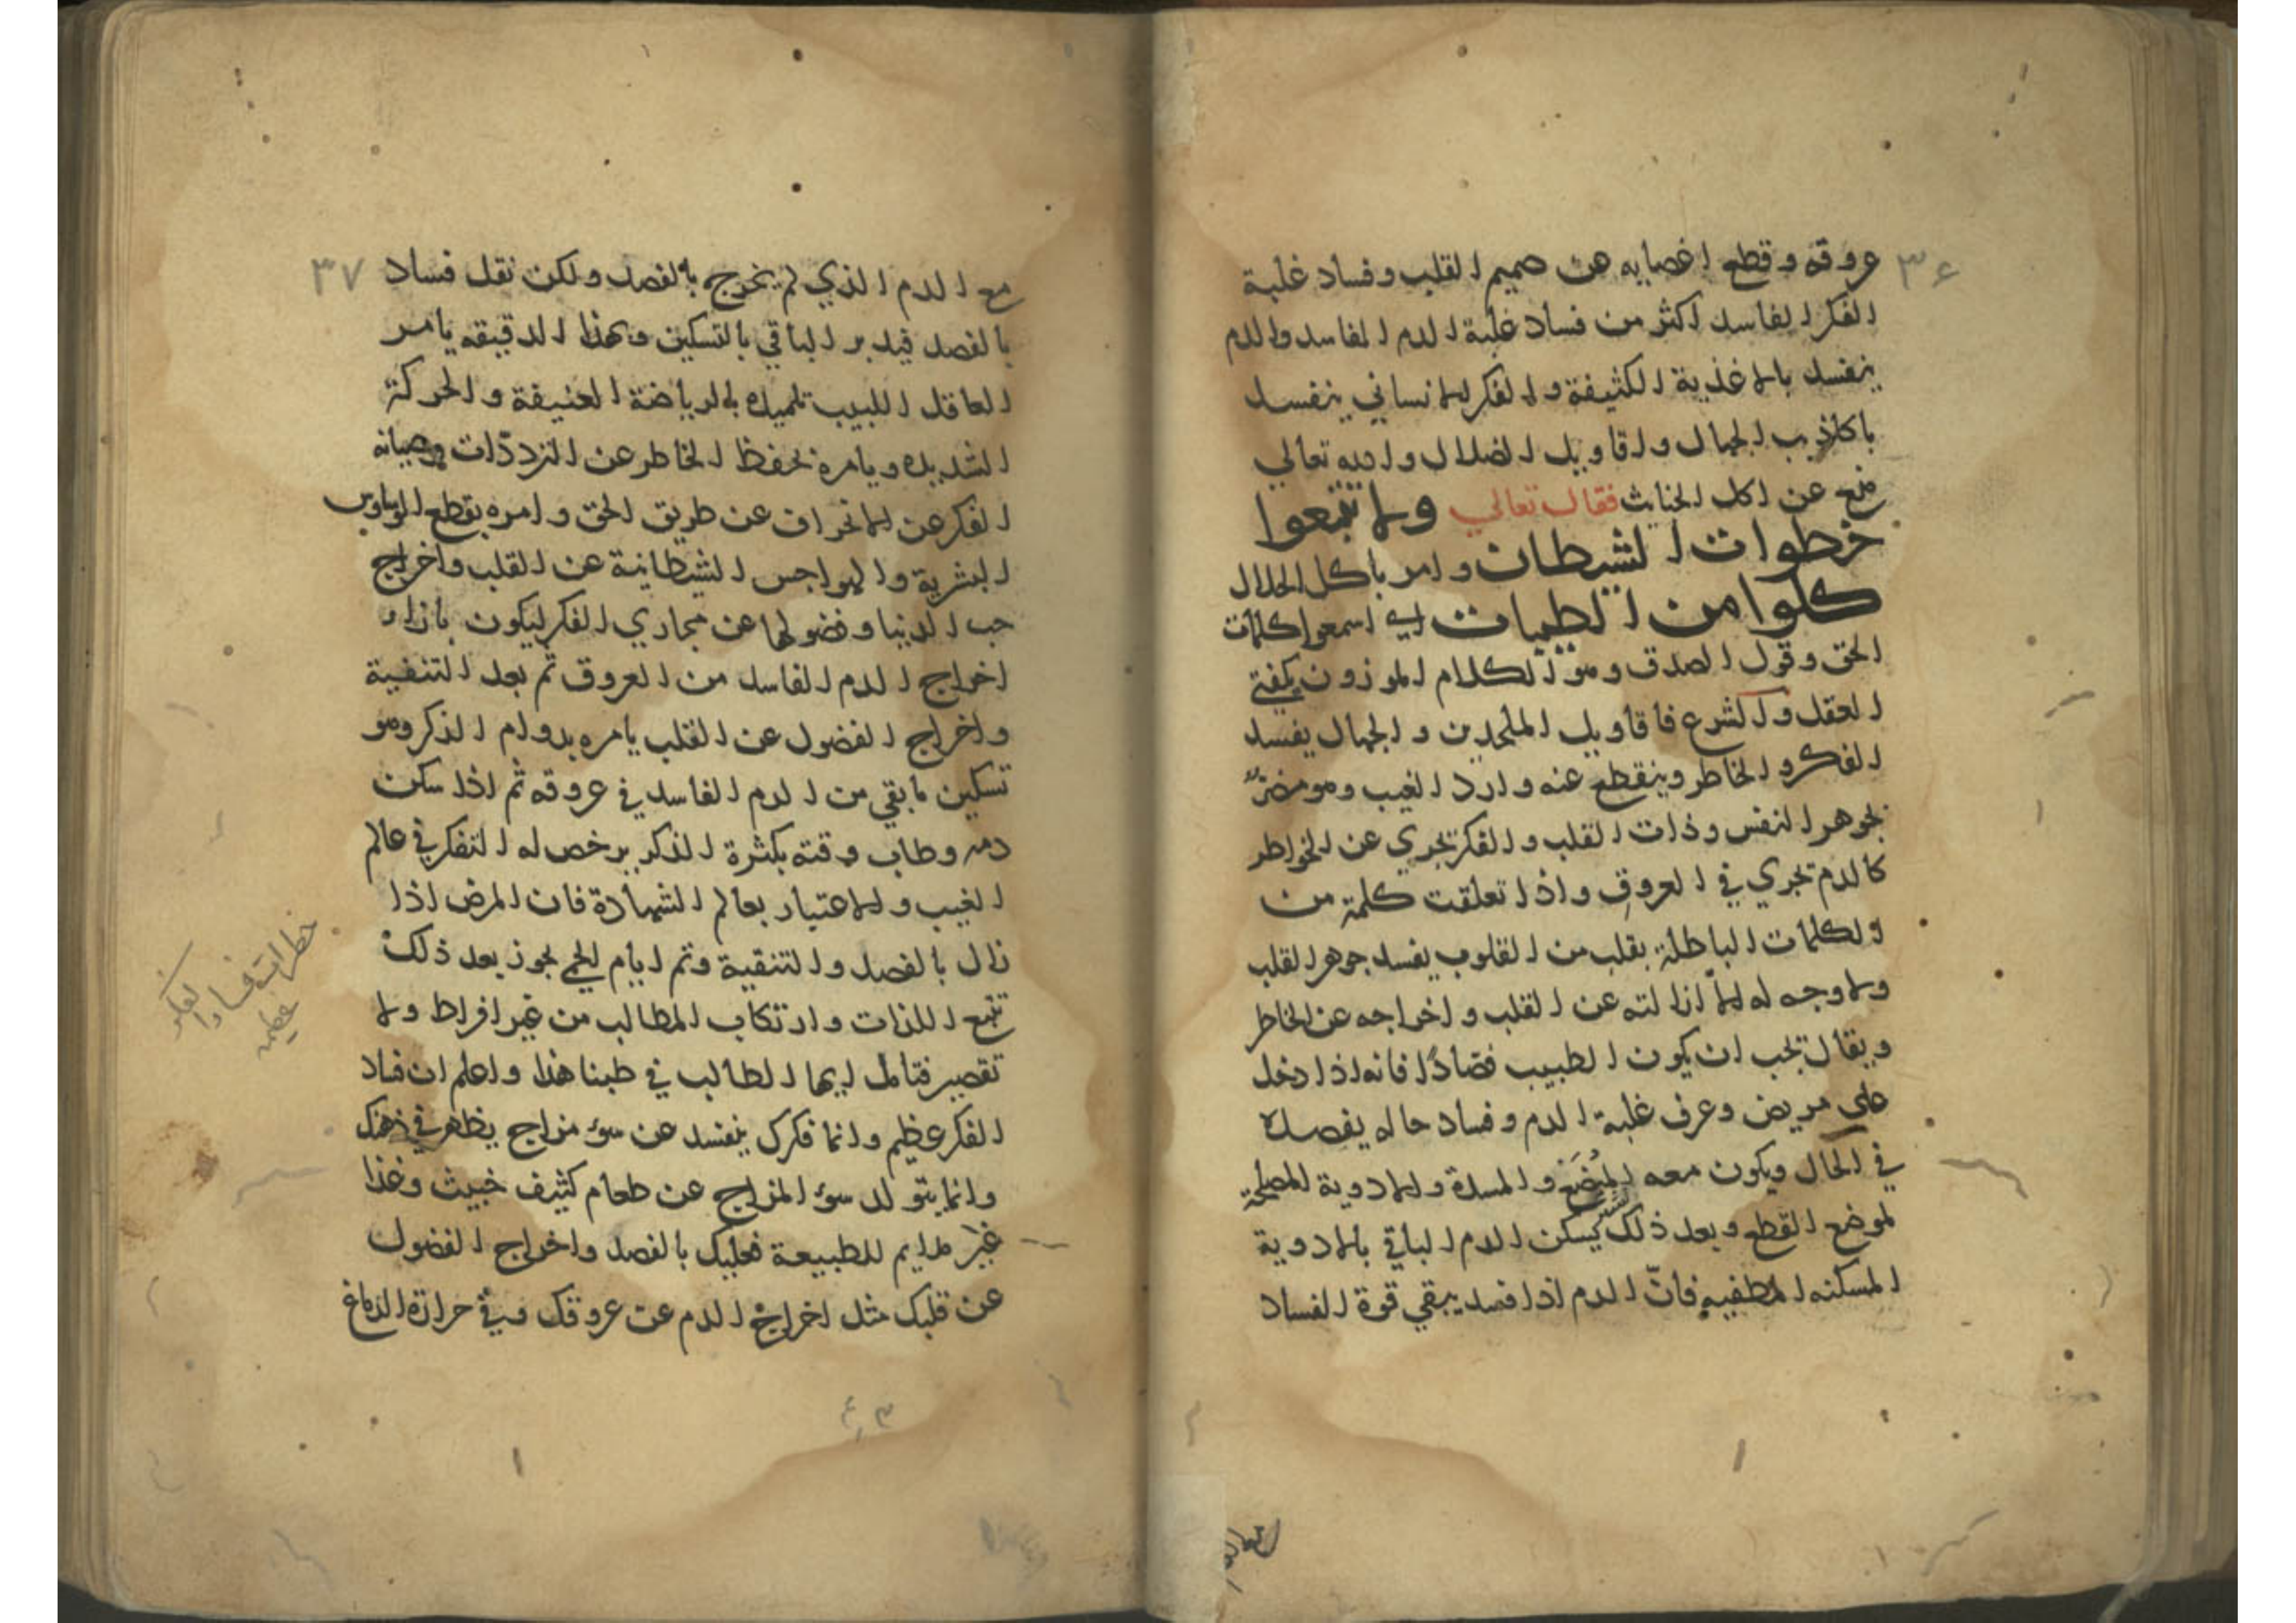 ٣٦
عروقه وقطع اغصابه عن صميم القلب وفساد غلبة
الفكر الفاسد اكثر من فساد غلبة الدم الفاسد والدم
ينفسد بالاغذية الكثيفة والفكر الانساني ينفسد
باكاذيب الجهال واقاويل الضلال والله تعالي
منع عن اكل الخبائث فقال تعالي ولا تتبعوا
خطوات الشيطان وامر باكل الحلال
كلوا من الطيبات اي اسمعوا كلمات
الحق وقول الصدق وهو الكلام الموزون بكفتي
العقل والشرع فاقاويل الملحدين والجهال يفسد
الفكر والخاطر وينقطع عنه وارد الغيب وهو مضر
بجوهر النفس وذات القلب والفكر تجري عن الخواطر
كالدم تجري في العروق واذا تعلقت كلمة من
الكلمات الباطلة بقلب من القلوب يفسد جوهر القلب
ولا وجه له الا ازالته عن القلب واخراجه عن الخاطر
ويقال تجب ان يكون الطبيب فصادا فانه اذا دخل
علي مريض وعرف غلبة الدم وفساد حاله يفصده
في الحال ويكون معه المبضع والمسدة والادوية المصلحة
لموضع القطع وبعد ذلك يسكن الدم الباقي بالادوية
المسكنه المطفيه فان الدم اذا فصد يبقي قوة الفساد
٣٧
مع الدم الذي لم يخرج بالفصد ولكن نقل فساد
بالفصد فيدبر الباقي بالتسكين وبهذا الدقيقه يامر
العاقل اللبيب تلميذه بالرياضة العنيفة والحركة
الشديده ويامره بحفظ الخاطر عن الترددات وصيانه
الفكر عن الانحراف عن طريق الحق وامره بقطع الوساوس
البشرية والهواجس الشيطانية عن القلب واخراج
حب الدنيا وفضولها عن مجاري الفكر ليكون بازاء
اخراج الدم الفاسد من العروق ثم بعد التنقية
واخراج الفضول عن القلب يامره بدوام الذكر وهو
تسكين ما بقي من الدم الفاسد في عروقه ثم اذا سكن
دمه وطاب وقته بكثرة الذكر يرخص له التفكر في عالم
الغيب والاعتبار بعالم الشهادة فان المرض اذا
زال بالفصد والتنقية وتم ايام الحمي يجوز بعد ذلك
تتبع اللذات وارتكاب المطالب من غير افراط ولا
تقصير فتامل ايها الطالب في طبنا هذا واعلم ان فساد
الفكر عظيم وانما فكرك ينفسد عن سوء مزاج يظهر في ذهنك
وانما يتولد سوء المزاج عن طعام كثيف خبيث وغذا
غير ملايم للطبيعة فعليك بالفصد واخراج الفضول
عن قلبك مثل اخراج الدم عن عروقك وفي حرارة الدماغ